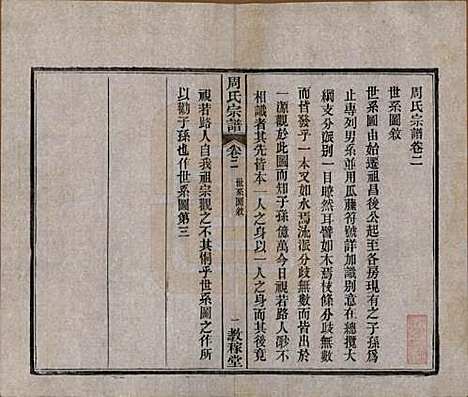 周氏宗譜卷二
世系圖敘
世系圖由始遷祖昌後公起至各房現有之子孫爲
止專列男系並用瓜藤符號詳加識別意在總攬大
綱支分派別一目瞭然耳譬如木焉枝條分歧無數
而皆發乎一本又如水焉流派分歧無數而皆發乎
一源觀於此圖而知子孫億萬今日視若路人渺不
相識者其先皆本一人之身以一人之身而其後竟
周氏宗譜
卷二
世系圖敘
一
敎稼堂
視若路人自我祖宗觀之不其恫乎世系圖之作所
以勸子孫也作世系圖第三